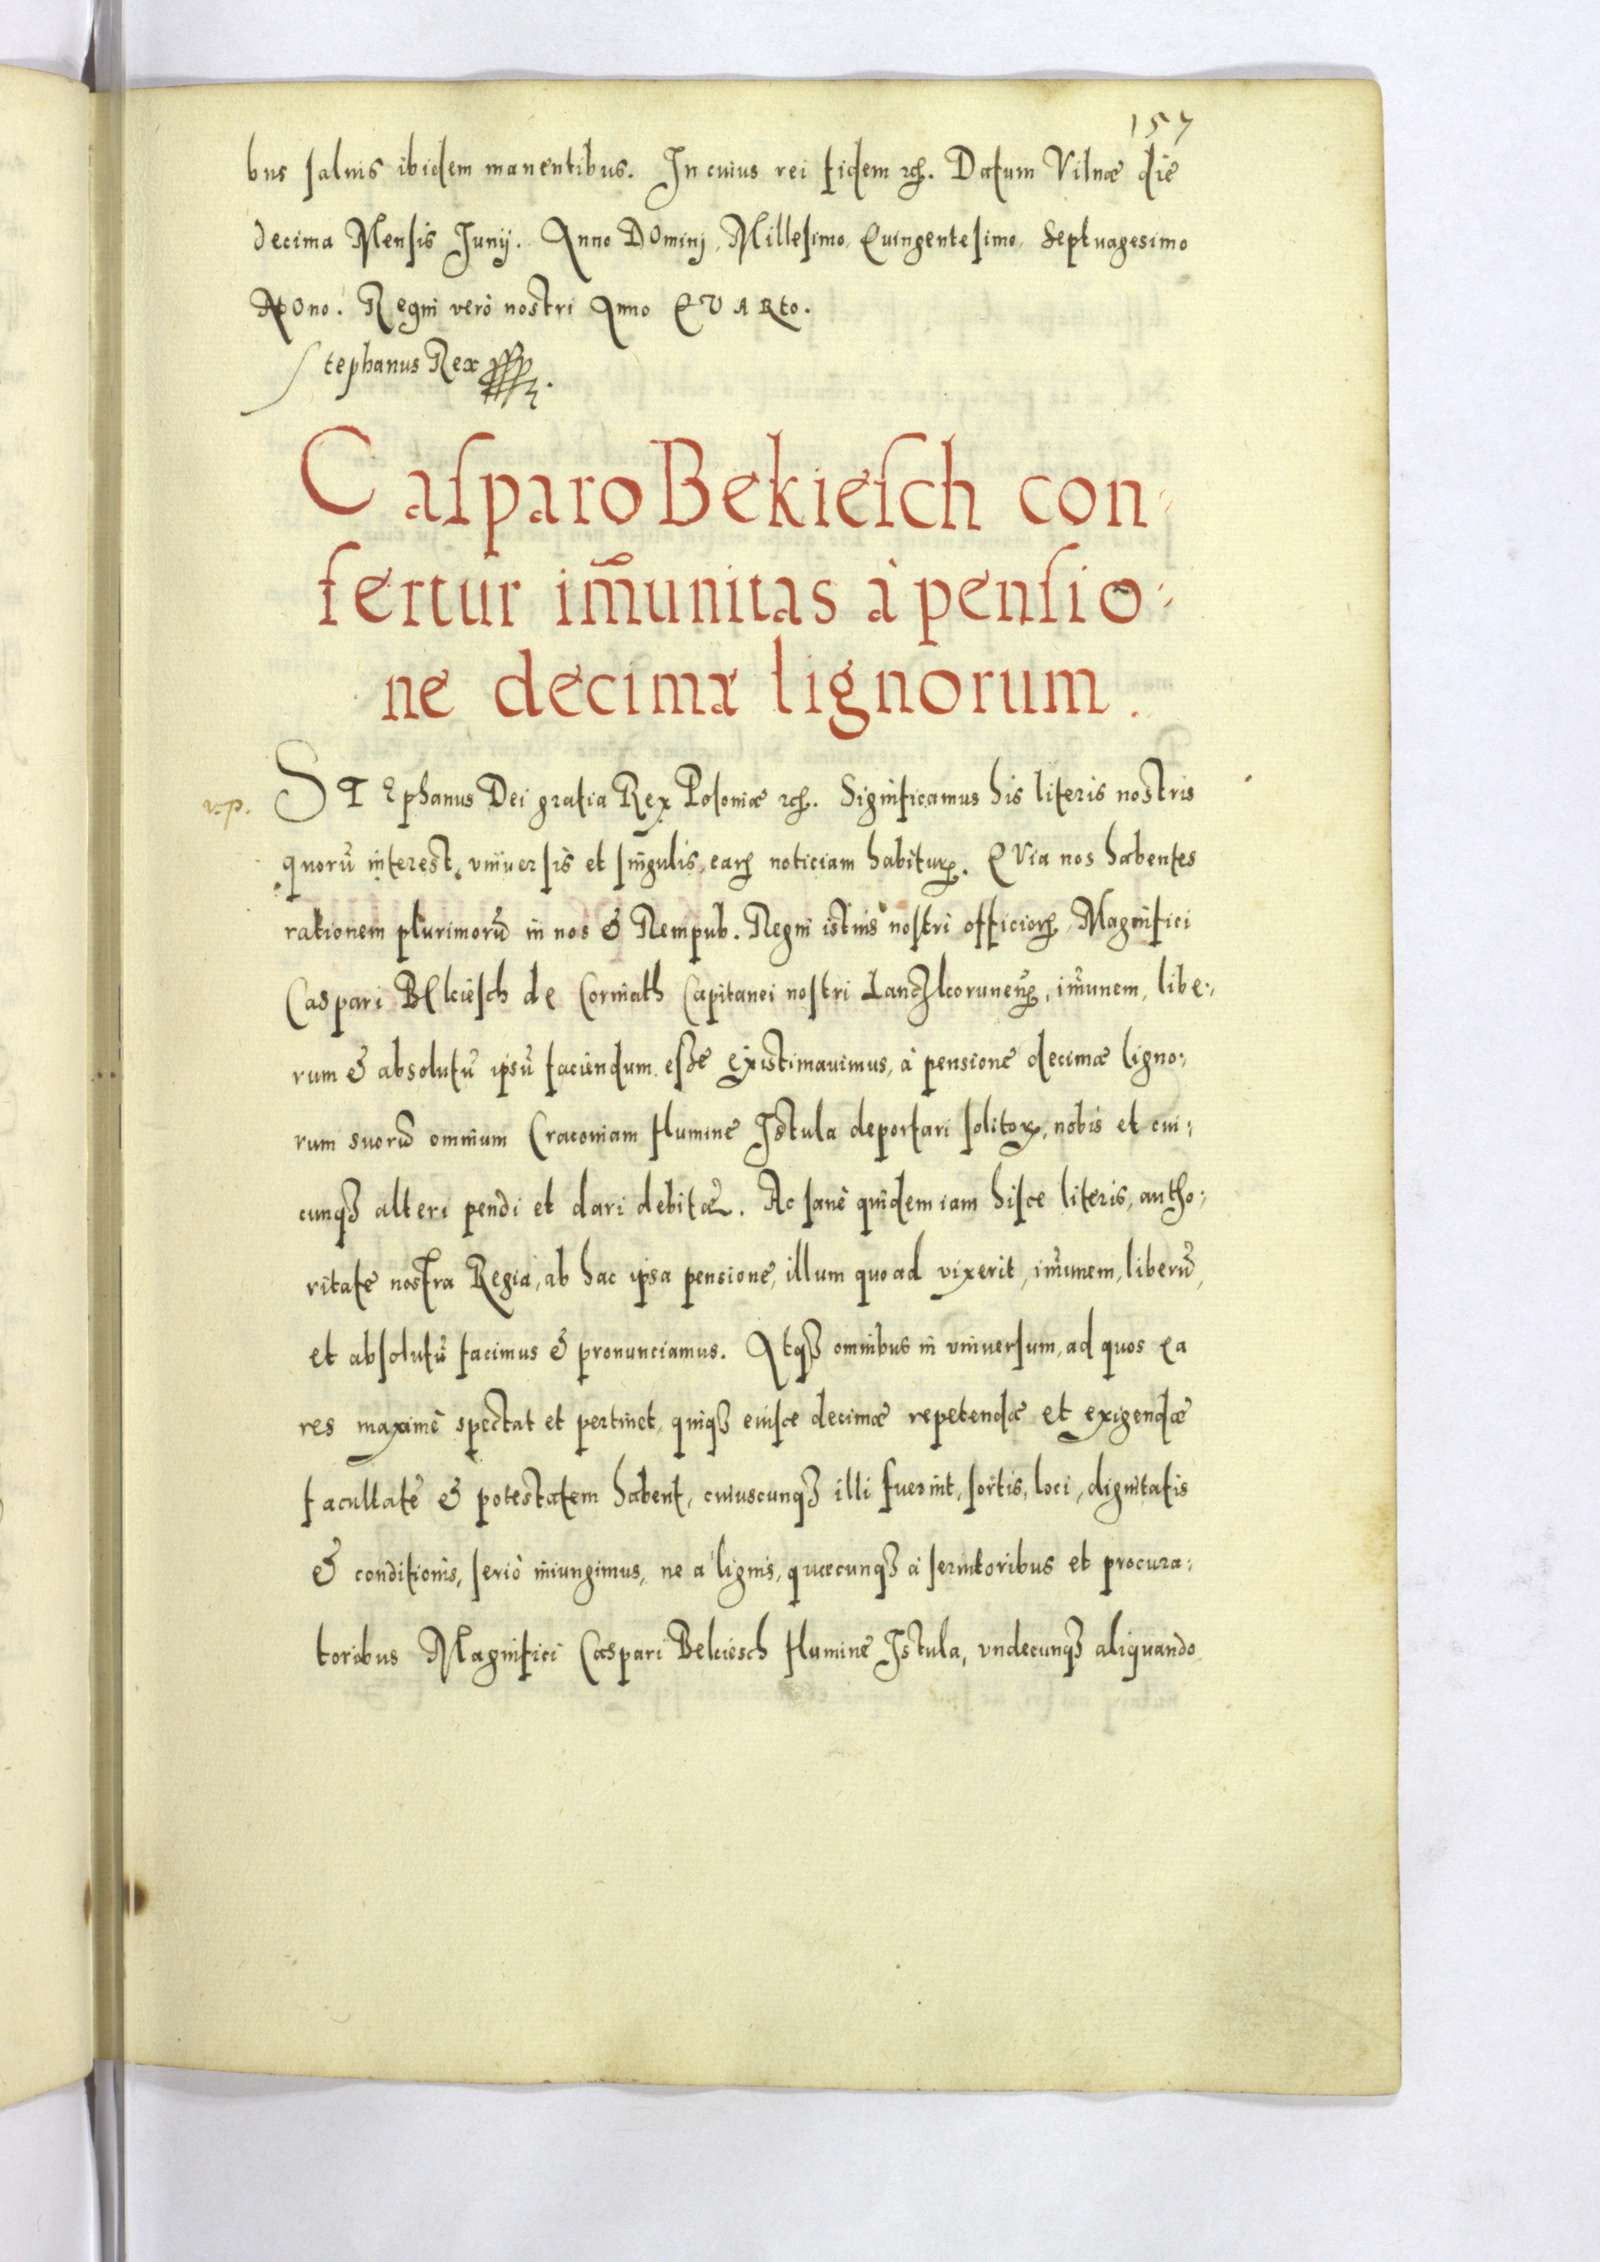 157
bus saluis ibidem manentibus. In cuius rei fidem etc. Datum Vilnæ die
decima Mensis Junij. Anno DOminj, Millesimo, Quingentesimo, Septuagesimo
NOno. Regni verò nostri Anno QVARto.
Stephanus Rex
Casparo Bekiesch con-
fertur im̃unitas à pensio-
ne decimæ lignorum.
v.p.
STEphanus Dei gratia Rex Poloniæ etc. Significamus his literis nostris
quorũ interest, vniuersis et singulis, earꝝ noticiam habiturꝭ. QVia nos habentes
rationem plurimorũ in nos & Rempub. Regni istius nostri officiorꝝ, Magnifici
Caspari BEkiesch de Corniath Capitanei nostri Lanczkorunenꝭ, im̃unem, libe-
rum & absolutũ ipsũ faciendum esse existimauimus, à pensione decimæ ligno-
rum suorũ omnium Cracouiam flumine Istula deportari solitoꝝ, nobis et cui-
cunqꝫ alteri pendi et dari debitæ. Ac sanè quidem iam hisce literis, autho-
ritate nostra Regia, ab hac ipsa pensione, illum quoad vixerit, im̃unem, liberũ,
et absolutũ facimus & pronunciamus. Atqꝫ omnibus in vniuersum, ad quos ea
res maximè spectat et pertinet, quiqꝫ eiusce decimæ repetendæ et exigendæ
facultatẽ & potestatem habent, cuiuscunqꝫ illi fuerint, sortis, loci, dignitatis
& conditionis, seriò iniungimus, ne à lignis, quæcunqꝫ à seruitoribus et procura-
toribus Magnifici Caspari Bekiesch flumine Istula, vndecunqꝫ aliquando